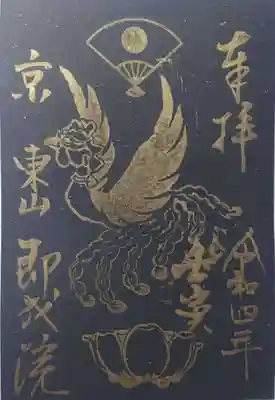 奉拝
令和四年
壬寅
京東山即成院